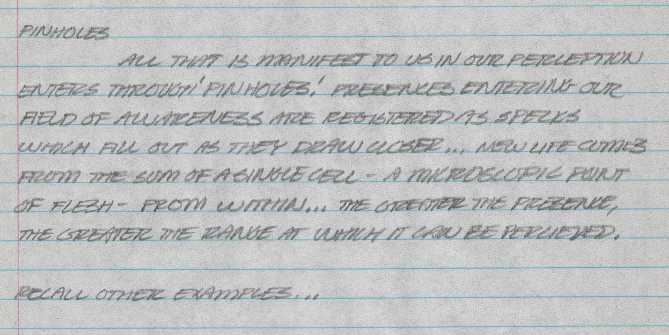 PINHOLES
ALL THAT IS MANIFEST TO US IN OUR PERCEPTION
ENTERS THROUGH 'PINHOLES.' PRESENCES ENTERING OUR
FIELD OF AWARENESS ARE REGISTERED AS SPECKS
WHICH FILL OUT AS THEY DRAW CLOSER... NEW LIFE COMES
FROM THE SUM OF A SINGLE CELL - A MICROSCOPIC POINT
OF FLESH - FROM WITHIN... THE GREATER THE PRESENCE,
THE GREATER THE RANGE AT WHICH IT CAN BE PERCIEVED.
RECALL OTHER EXAMPLES...